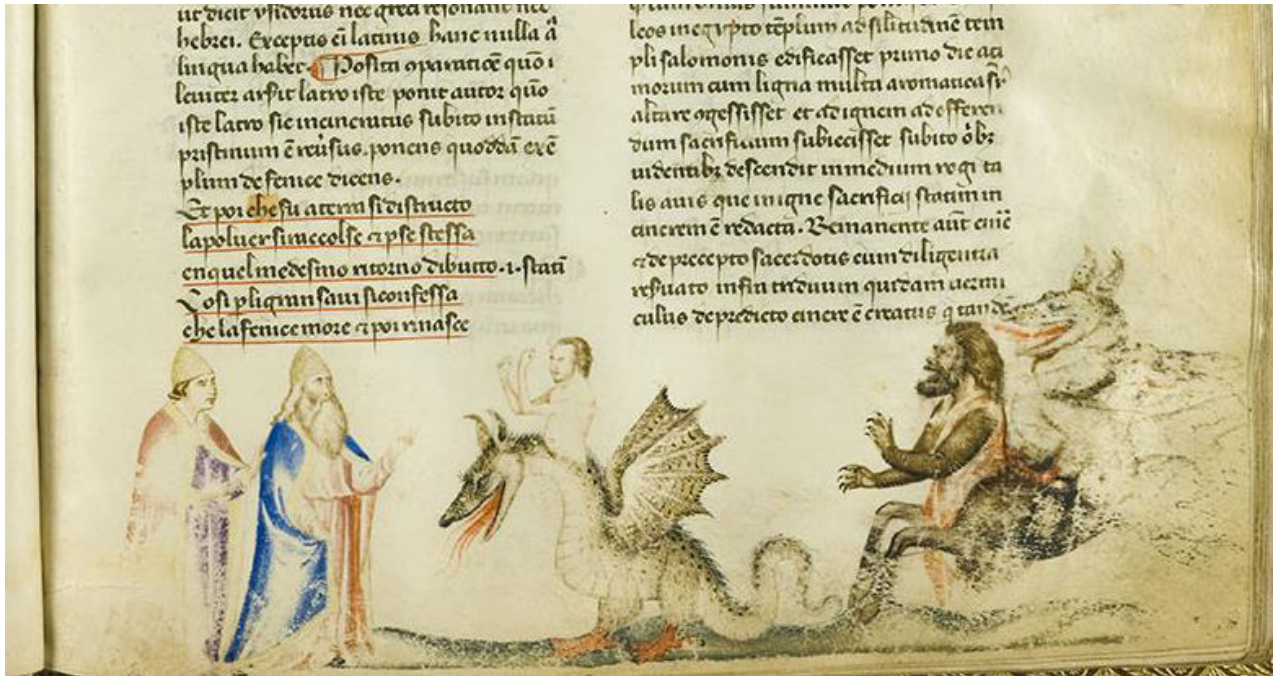 ut dicit ysidorus nec greci resonant nec
hebrei. Exceptis ei latinis hanc nulla a
lingua habet. Posita oparatice quo i
leuiter arsit latro iste ponit autor quo
iste latro sic incineratus subito in statu
pristinum e reusus. ponens quodda exe
plum de fenice dicens.
Et poi che fu a terra si distructo
la poluer si raccolse et p se stessa
en quel medesmo ritorno di butto .i. stati
Cosi p li gran saui si confessa
che la fenice more et poi rinasce
leos in egypto templum ad silitudine tem
pli salomonis edificasset primo die aci
morum cum ligna multa aromatica sr
altare ogessisset et ad ignem ad offeren
dum sacrificium subiecisset subito obz
uidentibz descendit in medium rogi ta
lis auis que in igne sacrificij statim in
cinerem e redacta. Remanente aut cine
et de precepto sacerdotis cum diligentia
resuato infra triduum quidam uermi
culus de predicto cinere e creatus q tande